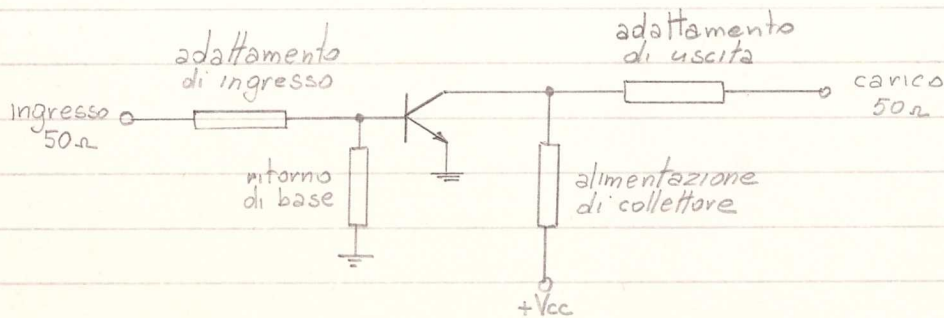 adattamento
di ingresso
adattamento
di uscita
ingresso
50Ω
carico
50Ω
ritorno
di base
alimentazione
di collettore
+Vcc